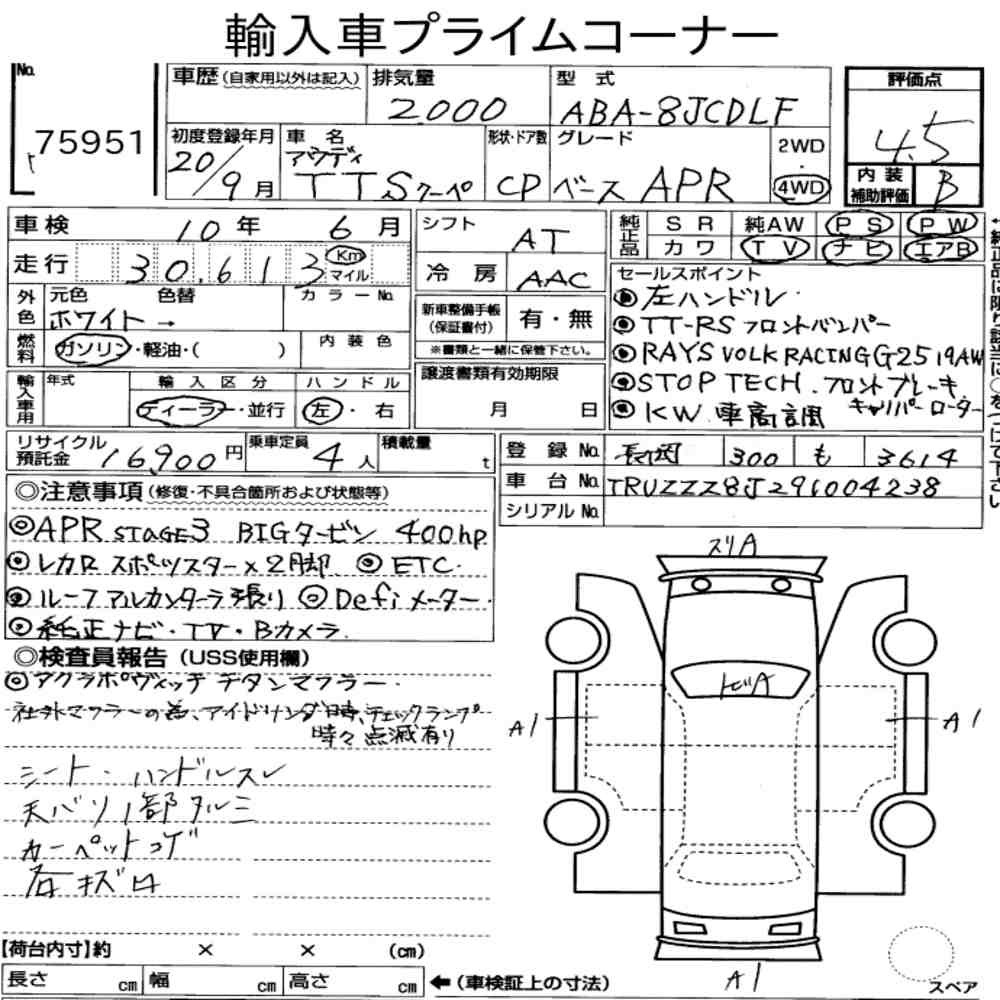 輸入車プライムコーナー
No.
75951
車歴(自家用以外は記入)
排気量
2000
型 式
ABA-8JCDLF
評価点
4.5
初度登録年月
20/9月
車 名
アウディ
TTSクーペ
形状・ドア数
CP
グレード
ベース APR
2WD
・
4WD
内装
補助評価
B
車検 10年 6月
走行 30.613 Km
マイル
シフト
AT
冷 房
AAC
純正品
SR 純AW PS PW
カワ TV ナビ エアB
外色
元色 色替
ホワイト →
カラーNo.
燃料
ガソリン・軽油・( )
内 装 色
新車整備手帳
(保証書付)
有・無
※書類と一緒に保管下さい。
セールスポイント
◎左ハンドル・
◎TT-RS フロントバンパー
◎RAYS VOLK RACING G25 19AW
◎STOP TECH. フロントブレーキ
キャリパーローター
◎KW. 車高調
輸入車用
年式
輸入区分
ディーラー・並行
ハンドル
左・右
譲渡書類有効期限
月 日
リサイクル
預託金 16,900円
乗車定員
4人
積載量
t
登 録 No. 長岡 300 も 3614
車 台 No. TRUZZZ8J291004238
シリアル No.
◎注意事項(修復・不具合箇所および状態等)
◎APR STAGE3 BIGタービン 400hp
◎レカロ スポーツスター×2脚. ◎ETC.
◎ルーフアルカンターラ張り ◎Defiメーター.
◎純正ナビ・TV・Bカメラ.
◎検査員報告(USS使用欄)
◎アクラポヴィッチ チタンマフラー.
社外マフラーの為、アイドリング時、チェックランプ
時々点滅有り
シート・ハンドルスレ
天バリ1部タルミ
カーペットコゲ
各キズ
スリA
トビA
A1
A1
A1
【荷台内寸】約 × × (cm)
長さ cm 幅 cm 高さ cm ←(車検証上の寸法)
スペア